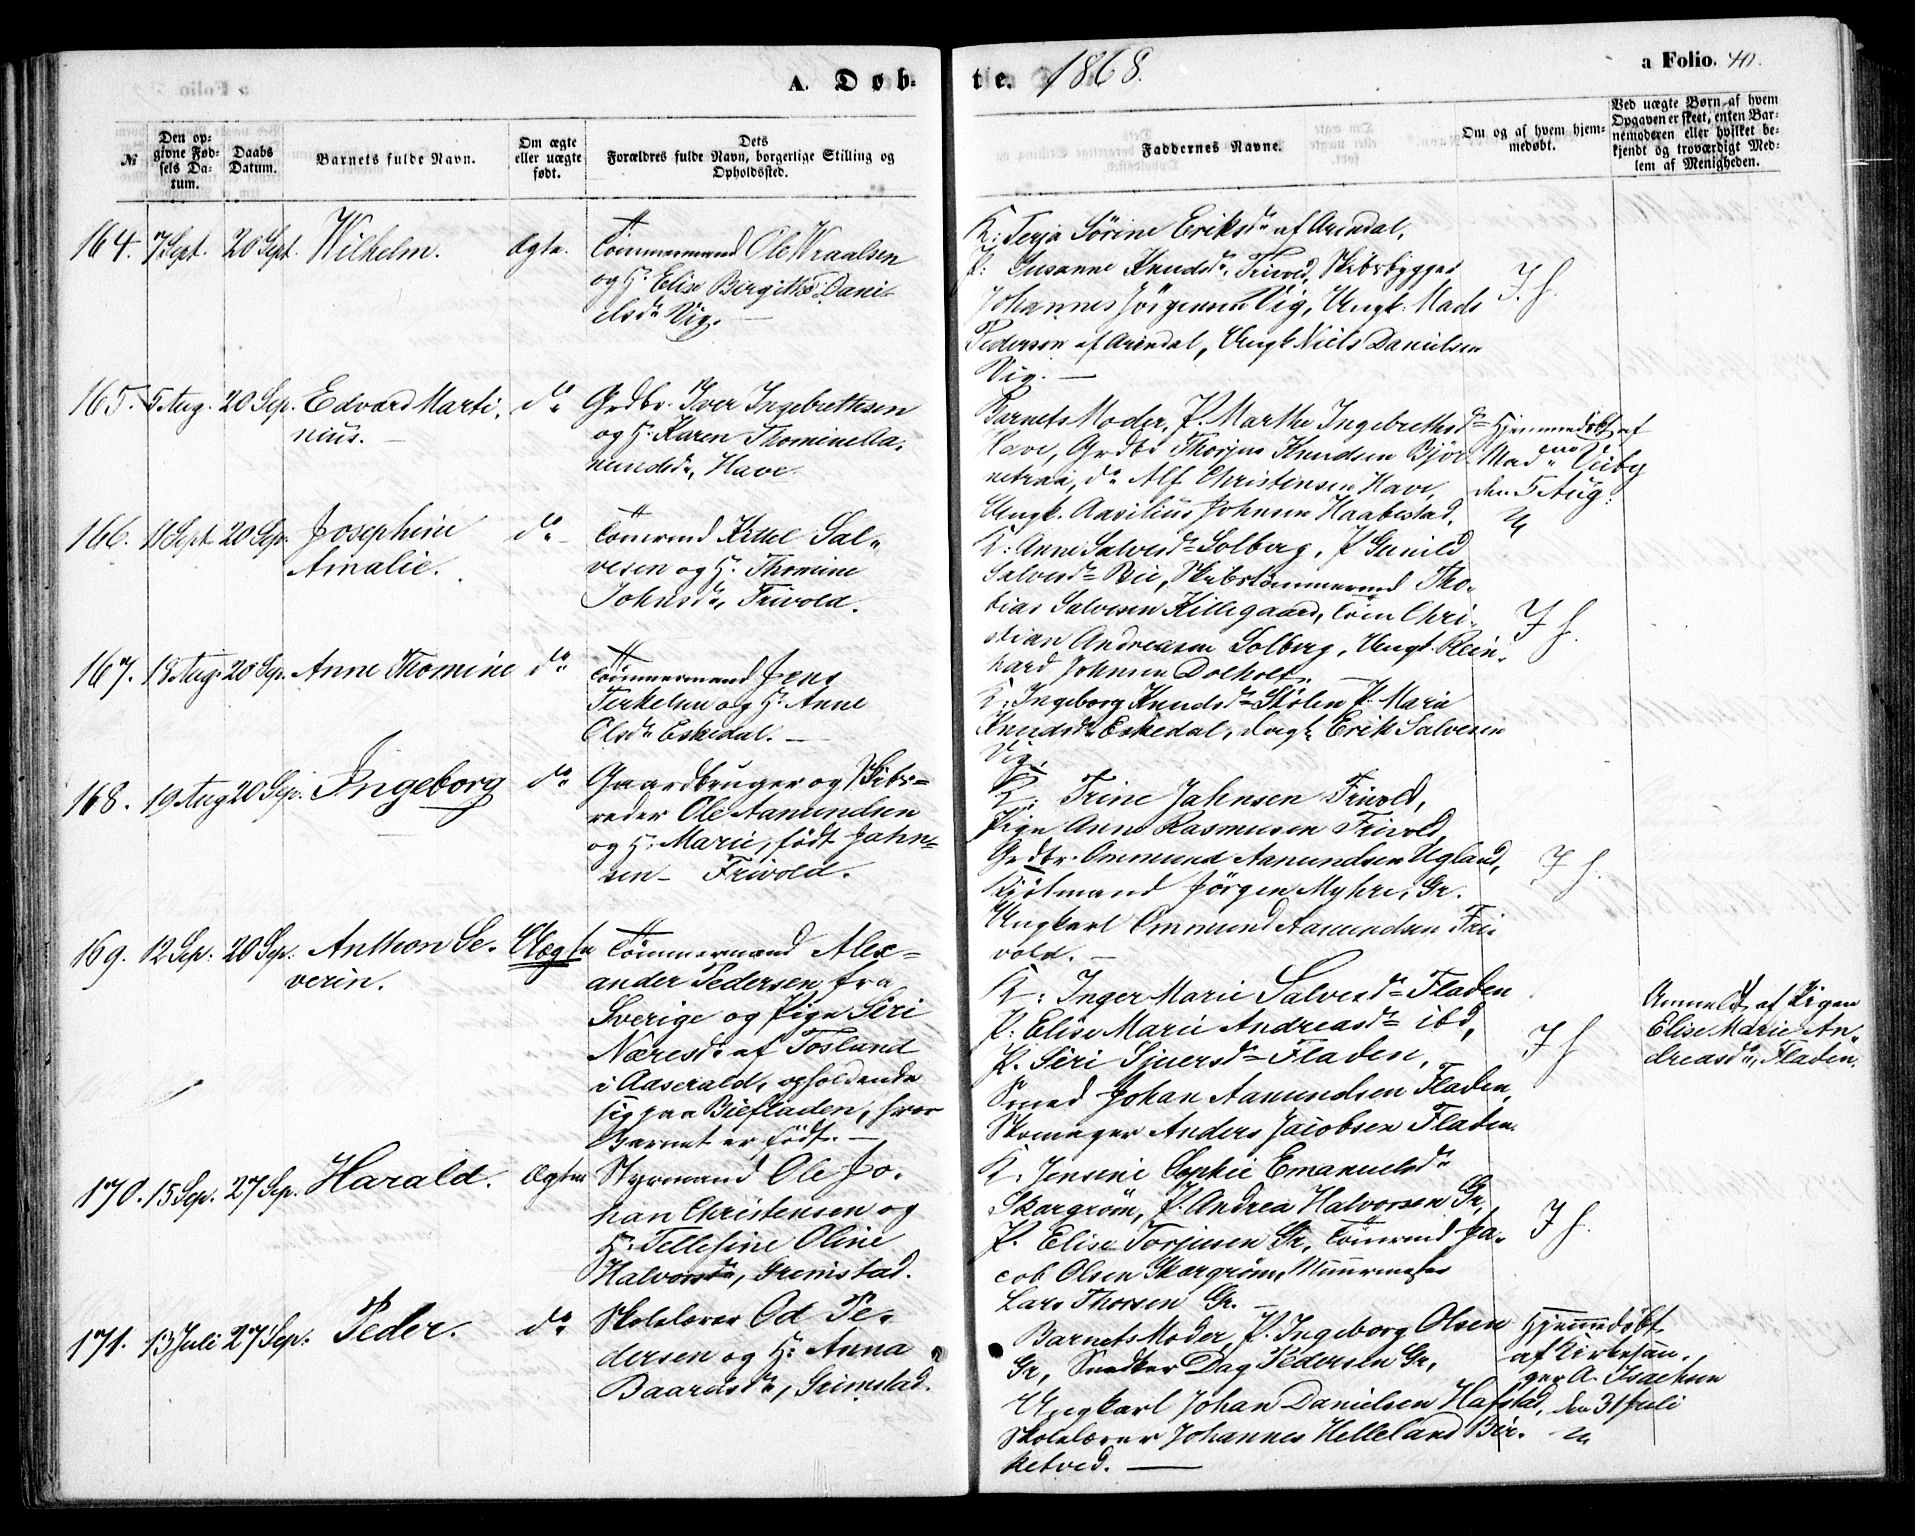 A. Døb-
te. 1868.
a Folio. 40.
№
Den op-
givne Fød-
sels Da-
tum.
Daabs
Datum.
Barnets fulde Navn.
Om ægte
eller uægte
født.
Dets
Forældres fulde Navn, borgerlige Stilling og
Opholdssted.
Faddernes Navne.
Om og af hvem hjem-
medøbt.
Ved uægte Børn af hvem
Opgaven er skeet, enten Bar-
nemoderen eller hvilket be-
kjendt og troværdigt Med-
lem af Menigheden.
164. 7 Sept. 20 Sept. Wilhelm. Ægte.
Tømmermand Ole Wraalsen
og H. Elise Birgithe Dani-
elsdr Vig.
K: Terja Sørine Eriksdr af Arendal,
P: Susanne Knudsdr Frivold, Skibsbygger
Johannes Jörgensen Vig, Ungk: Mads
Pedersen af Arendal, Ungk Niels Danielsen
Vig. —
J. f.
165. 5 Aug. 20 Sep. Edvard Marti-
nius. —
do
Grdbr. Iver Ingebrethsen
og H. Karen Thomine Aa-
nundsdr, Have.
Barnets Moder, P. Marthe Ingebrethsdr
Have, Grdbr Thorjus Knudsen Bjør-
netraa, do Alf Christensen Have,
Ungk. Aasilius Johnsen Haabestad.
Hjemmedøbt af
Madme Viiby
den 5 Aug.
166. 11 Sept 20 Sep. Josephine
Amalie.
do
Tömmd Kittel Sal-
vesen og H. Thomine
Johnsdr, Frivold.
K: Anne Salvesdr Solberg, P Gunild
Salvesdr Bie, Skibstømmermd Tho-
bias Salvesen Killegaard, Tøm Chri-
stian Andreasen Solberg, Ungk. Rein-
hard Johnsen Dolholt.
J f.
167. 18 Aug. 20 Sep. Anne Thomine do
Tømmermand Jens
Terkelsen og H. Anne
Olsdr Eskedal. —
K: Ingeborg Knudsdr Stølen P. Maria
Knudsdr Eskedal, Erik Salvesen
Vig.
168. 19 Aug 20 Sep. Ingeborg do
Gaardbruger og Skibs-
reder Ole Aanundsen
og H: Marie, født Jahn-
sen — Frivold.
K: Trine Jahnsen Frivold,
Pige Anne Rasmusen Frivold,
Grdbr. Ommund Aanundsen Ugland,
Jörgen Myhre, Gr.
Ungkarl Ommund Aanundsen Fri-
vold. —
J f.
169. 12 Sep. 20 Sep. Anthon Se-
verin.
Uægte
Tømmermand Alex-
ander Pedersen fra
Sverige og Pige Siri
Næresdr af Tosland
i Aaserald, opholdende
sig paa Biefladen, hvor
Barnet er født. —
K: Inger Marie Salvesdr Fladen
P: Elise Marie Andreasdr ibd,
P. Siri Sjursdr Fladen,
Smed Johan Aanundsen Fladen,
Skomager Anders Jacobsen Fladen.
J f
Anmeldt af Pigen
Elise Marie An-
dreasdr, Fladen.
170. 15 Sep. 27 Sep. Harald. Ægte
Styrmand Ole Jo-
han Christensen og
H: Tellefine Oline
Halvorsdr, Grimstad.
K. Jensine Sophie Emanuelsdr
Skargrøm, P. Andrea Halvorsen Gr,
P. Elise Torjusen Gr, Tömmd Ja-
cob Olsen Skargrøm, Muurmester
Lars Thorsen Gr. —
J f.
171. 13 Juli 27 Sep. Peder. do
Skolelærer Od Pe-
dersen og H: Anna
Baardsdr, Grimstad.
Barnets Moder, P. Ingeborg Olsen
Gr, Snedker Dag Pedersen Gr,
Ungkarl Johan Danielsen Hafstad,
Skolelærer Johannes Helleland Bir-
ketved. —
Hjemmedøbt
af Kirkesan-
ger A. Isachsen
den 31 Juli